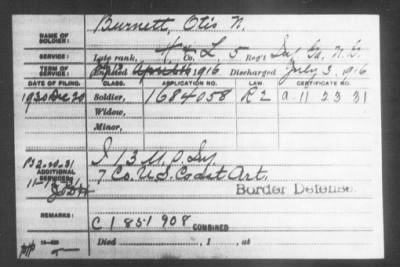 NAME OF SOLDIER: Burnett, Otis N.
SERVICE: Late rank, Co. L, 5 Reg't Inf. N. G.
TERM OF SERVICE: Enlisted April 1916, Discharged July 3, 1916
DATE OF FILING. CLASS. APPLICATION NO. LAW. CERTIFICATE NO.
1930 Dec 20 Soldier, 1684058 R2 A-11 23 31
Widow,
Minor,
ADDITIONAL SERVICES: I 13 U.S. Inf.
7 Co. U.S. Coast Art.
Border Defense.
REMARKS: C 1 851 908
COMBINED
Died , 1 , at